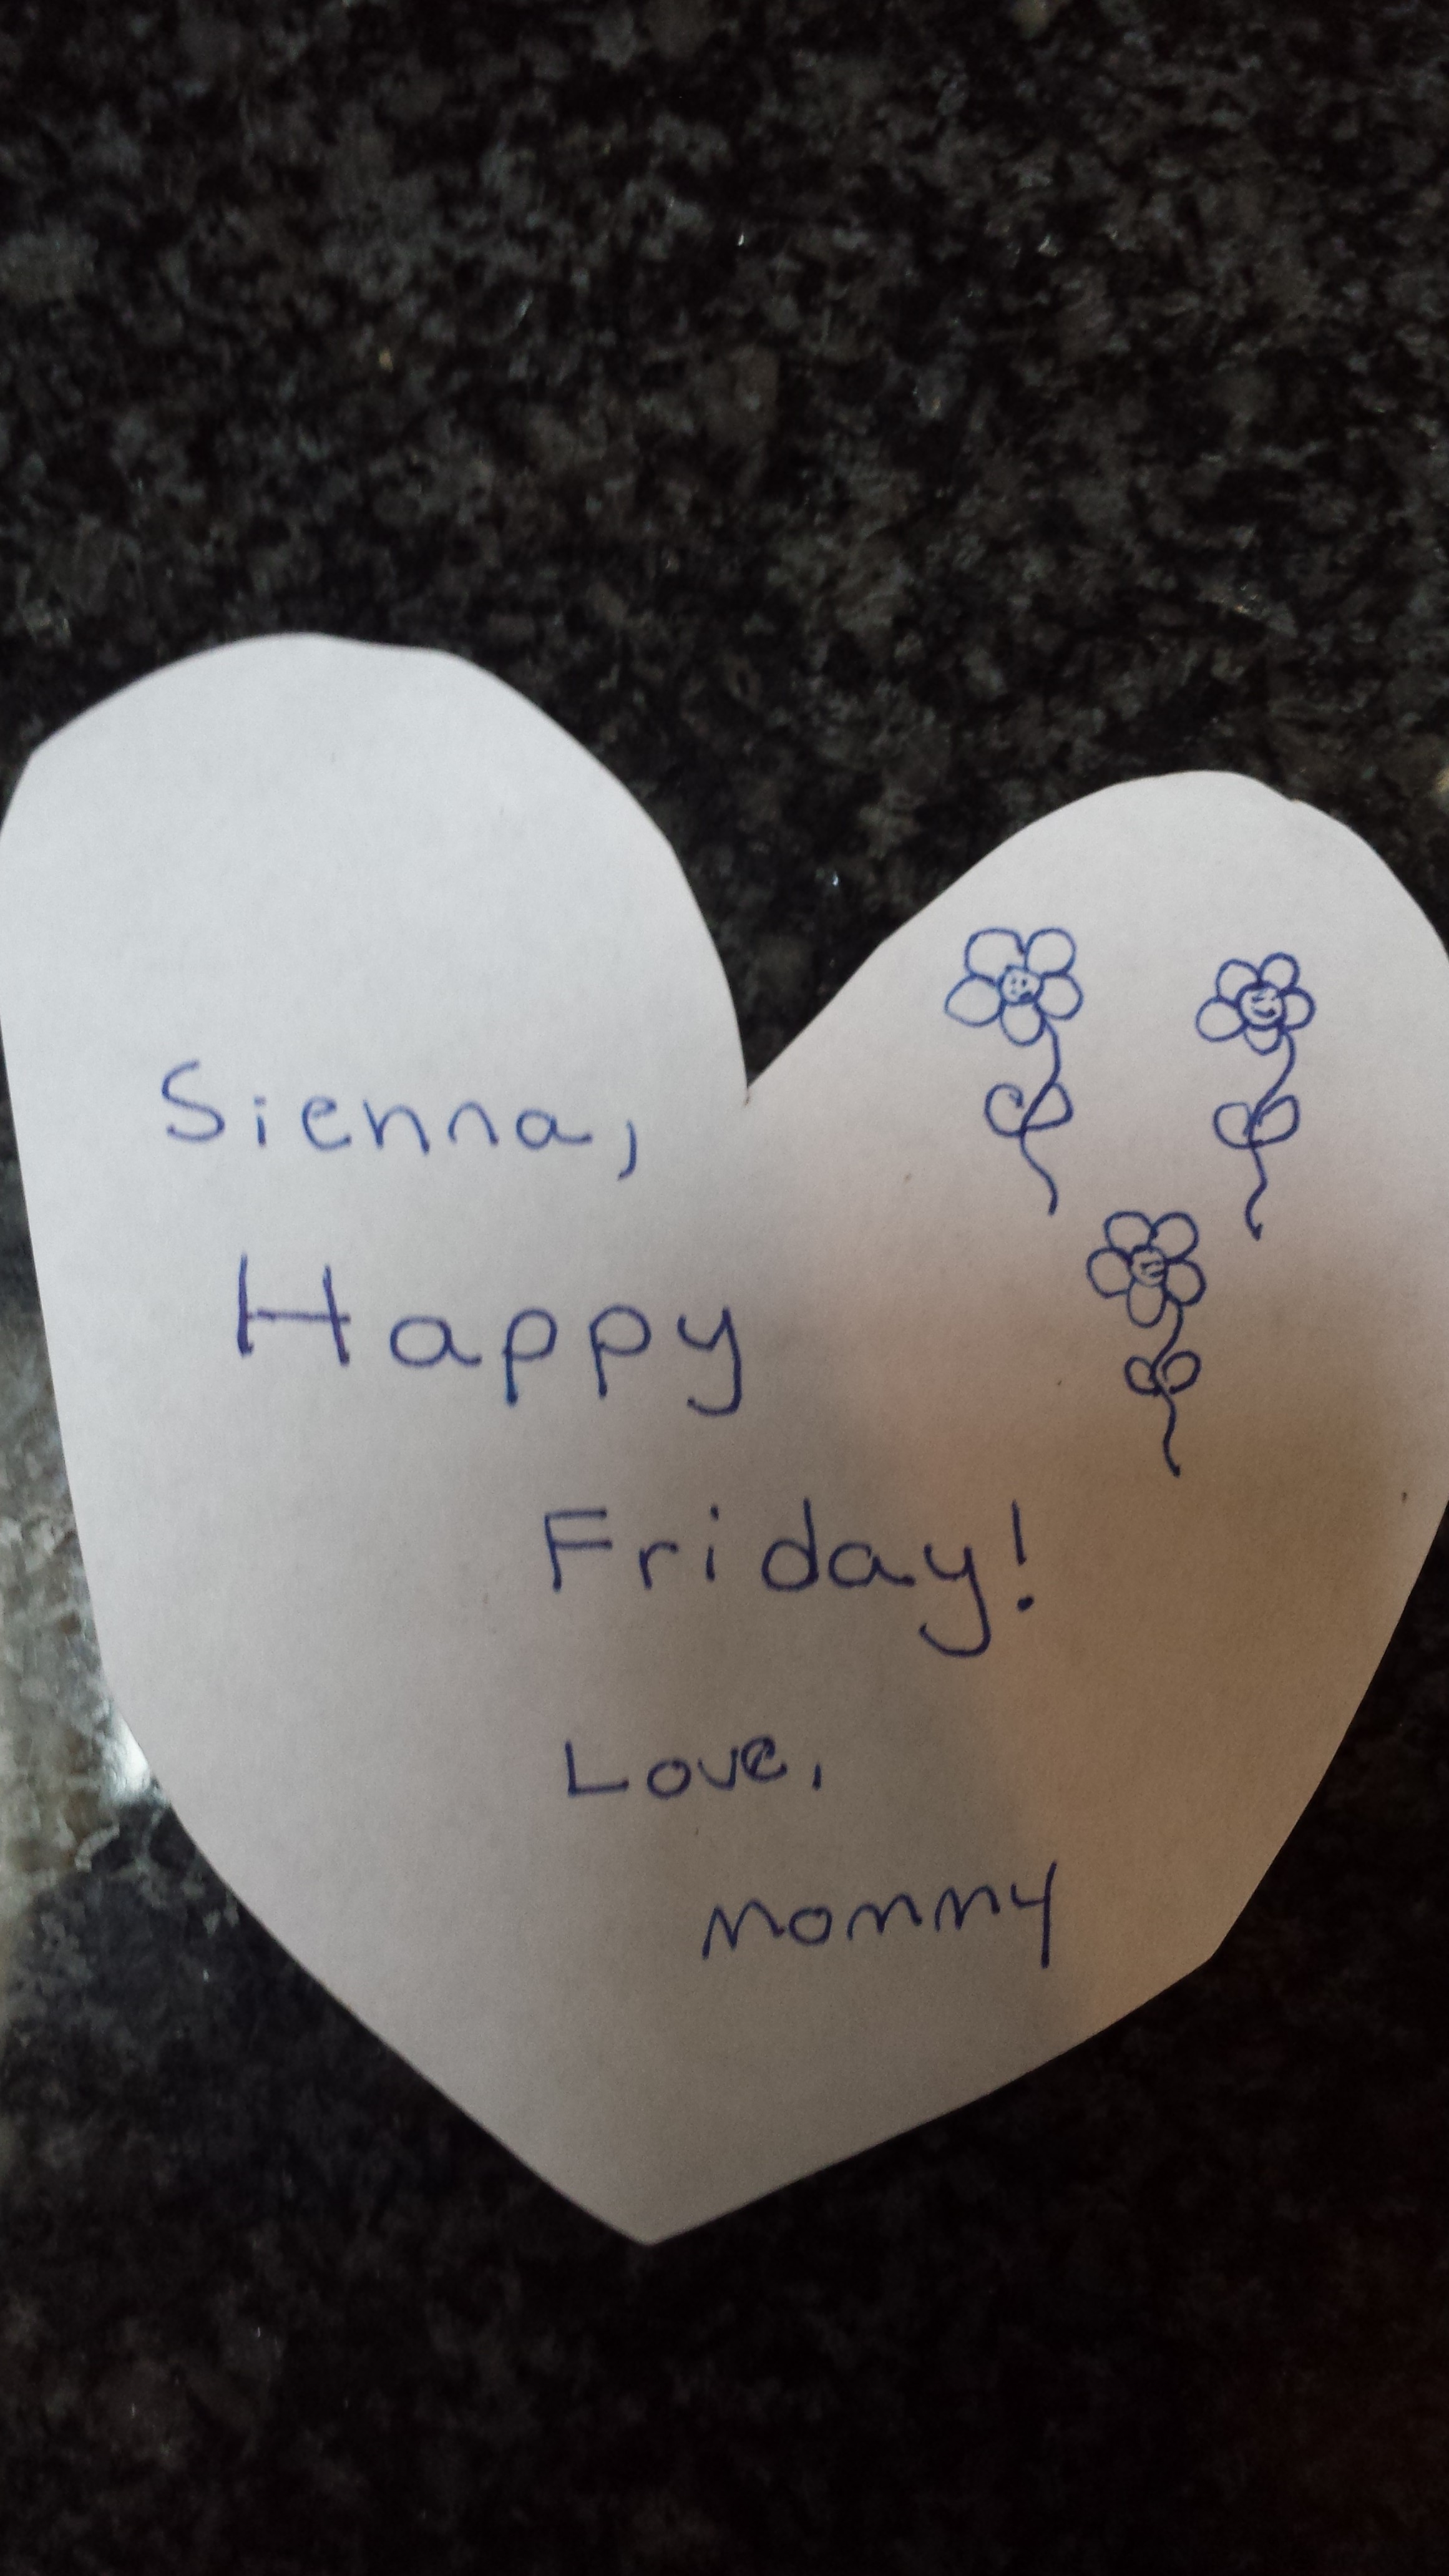 Sienna,
Happy
Friday!
Love,
Mommy